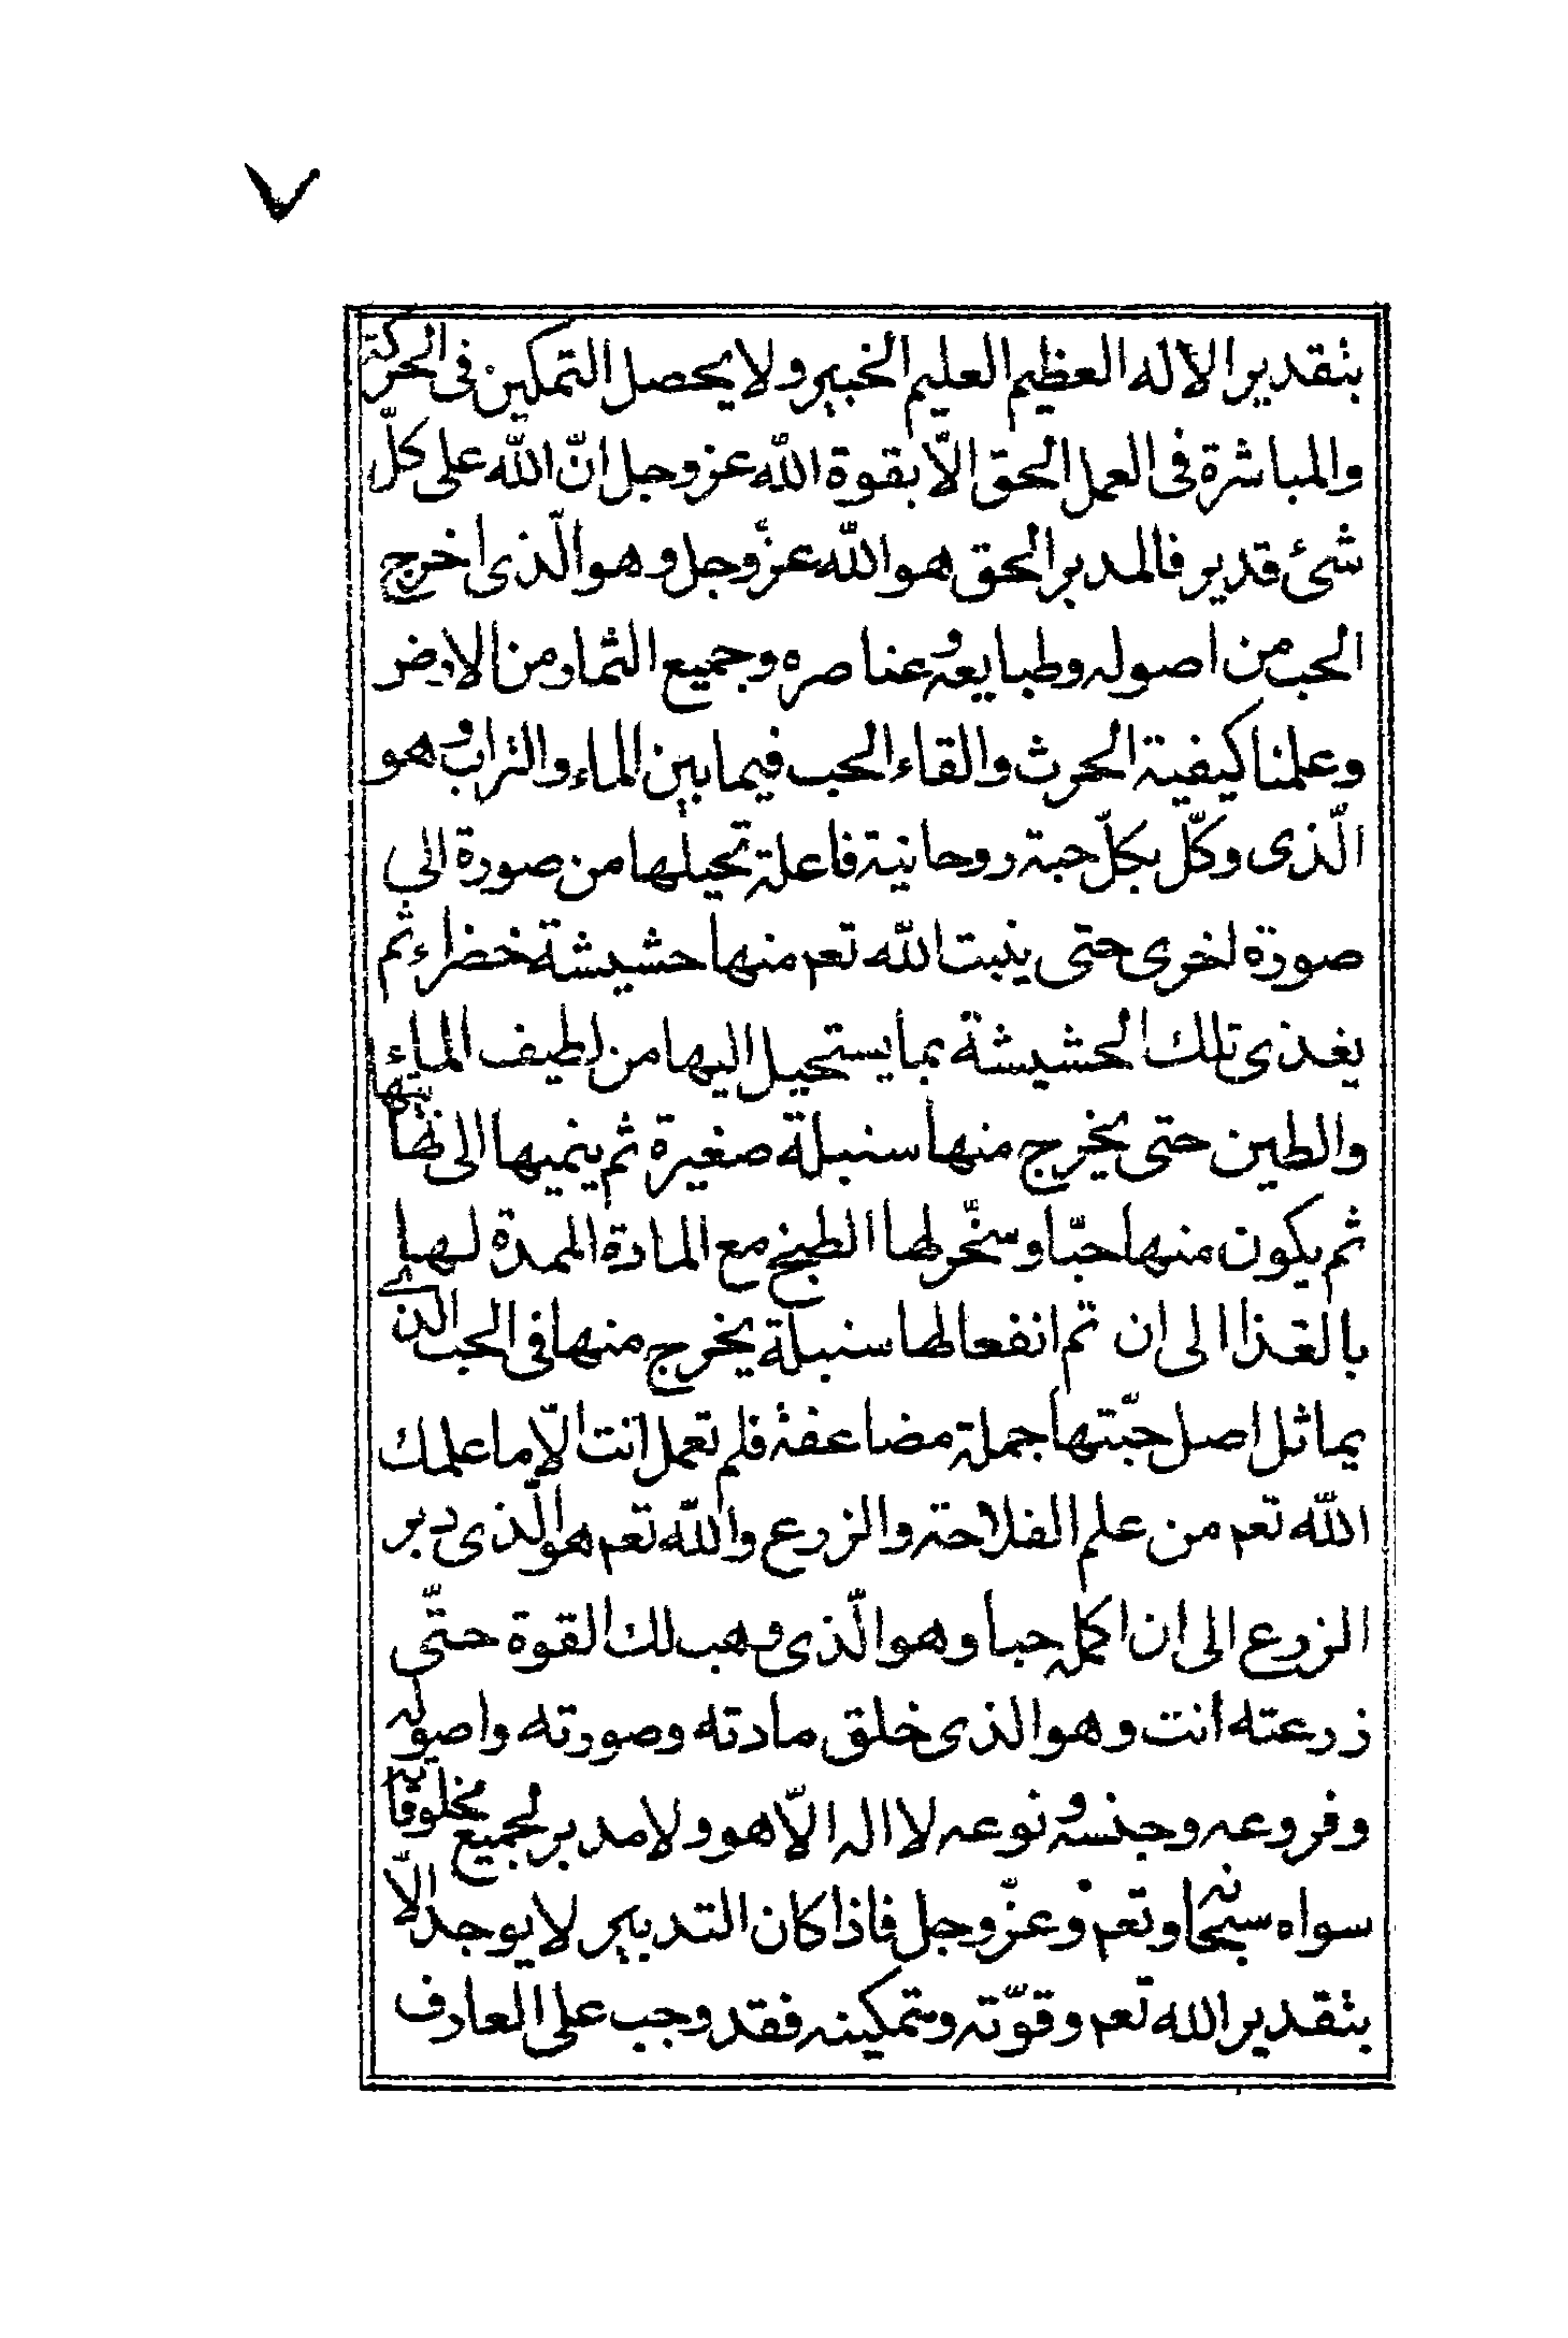 ٧
بتقدير الاله العظيم العليم الخبير ولا يحصل التمكين فى الحركة
والمباشرة فى العمل الحق الّا بقوة اللّه عز وجل انّ اللّه على كلّ
شئ قدير فالمدبر الحق هو اللّه عزّ وجل وهو الّذى اخرج
الحب من اصوله وطبايعه وعناصره وجميع الثمار من الارض
وعلمنا كيفية الحرث والقاء الحب فيما بين الماء والتراب وهو
الّذى وكّل بكلّ حبة روحانية فاعلة تحيلها من صورة الى
صورة اخرى حتى ينبت اللّه تعم منها حشيشة خضراء ثم
يغذى تلك الحشيشة بما يستحيل اليها من لطيف الماء
والطين حتى يخرج منها سنبلة صغيرة ثم ينميها الى نهايتها
ثم يكون منها حبّا وسخّر لها الطبخ مع المادة الممدة لها
بالغذا الى ان تم انفعالها سنبلة يخرج منها فى الحب الذى
يماثل اصل حبّتها جملة مضاعفة فلم تعمل انت الّا ما علمك
اللّه تعم من علم الفلاحة والزرع واللّه تعم هو الّذى دبر
الزرع الى ان اكمله حبا وهو الّذى وهب لك القوة حتّى
زرعته انت وهو الذى خلق مادته وصورته واصوله
وفروعه وجنسه ونوعه لا اله الّا هو ولا مدبر لجميع مخلوقاته
سواه سبحانه وتعم وعزّ وجل فاذا كان التدبير لا يوجد الّا
بتقدير الله تعم وقوّته وتمكينه فقد وجب على العارف